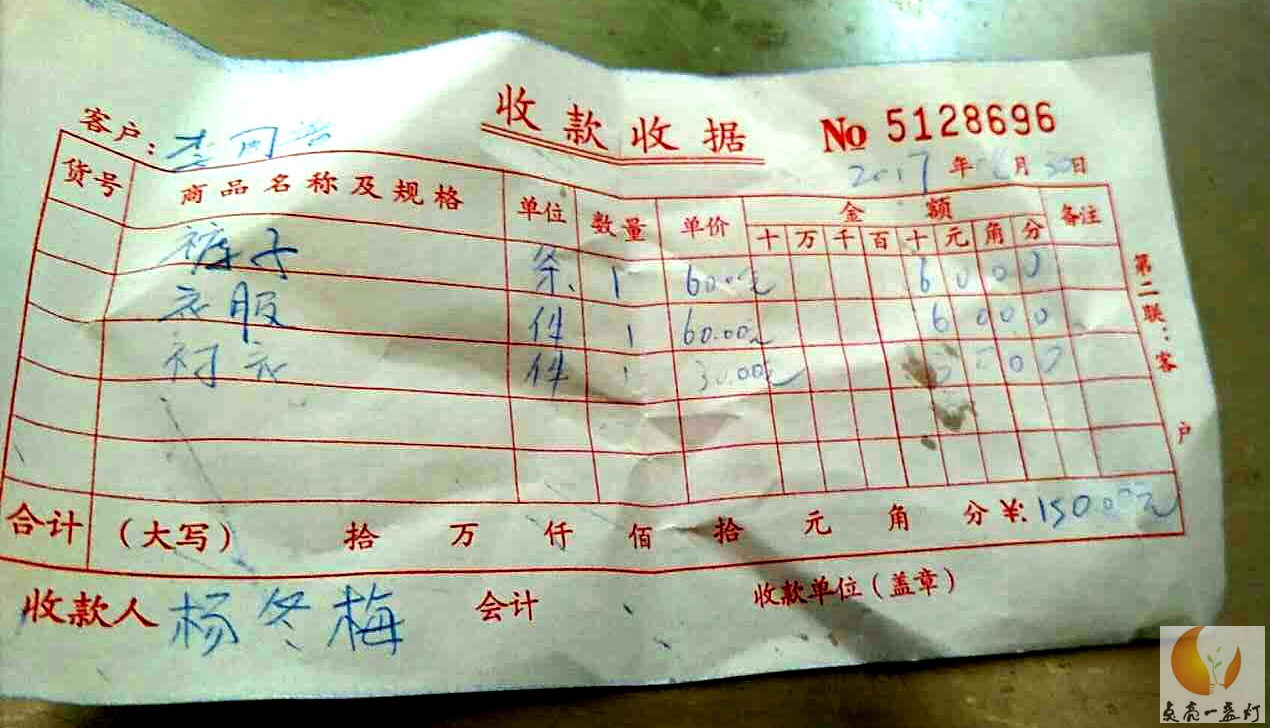 收款收据
No 5128696
客户：李
2017年 月30日
货号 商品名称及规格 单位 数量 单价 金额 备注
十 万 千 百 十 元 角 分
裤子 条 1 60.00元 6 0 0 0
衣服 件 1 60.00元 6 0 0 0
衬衣 件 1 30.00元 3 0 0 0
合计 （大写） 拾 万 仟 佰 拾 元 角 分 ¥:150.00元
收款人 杨冬梅 会计 收款单位（盖章）
第二联：客户
点亮一盏灯